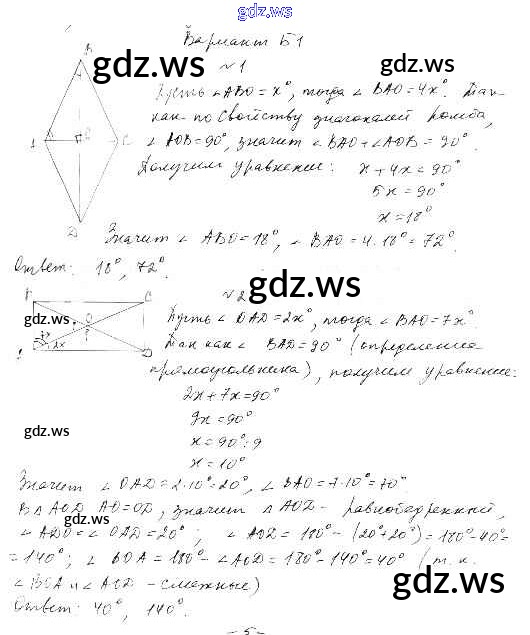 gdz.ws
Вариант Б1
gdz.ws
gdz.ws
№1
B
Пусть ∠ABO = x°, тогда ∠BAO = 4x°. Так
как по свойству диагоналей ромба,
A O C
∠AOB = 90°, значит ∠BAO + ∠AOB = 90°.
Получим уравнение: x + 4x = 90°
5x = 90°
x = 18°
D
Значит ∠ABO = 18°, ∠BAO = 4·18° = 72°.
Ответ: 18°, 72°.
№2
gdz.ws
B C
gdz.ws
Пусть ∠OAD = 2x°, тогда ∠BAO = 7x°
O
Так как ∠BAD = 90° (определение
2x
прямоугольника), получим уравнение:
2x + 7x = 90°
9x = 90°
gdz.ws
x = 90°:9
x = 10°
Значит ∠OAD = 2·10° = 20°, ∠BAO = 7·10° = 70°
В △AOD AO = OD, значит △AOD – равнобедренный,
gdz.ws
∠ADO = ∠OAD = 20°; ∠AOD = 180° – (20° + 20°) = 180° – 40° =
= 140°; ∠BOA = 180° – ∠AOD = 180° – 140° = 40° (т.к.
∠BOA и ∠AOD – смежные)
gdz.ws
Ответ: 40°, 140°.
– 5 –